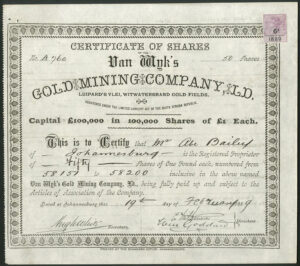 CERTIFICATE OF SHARES
OF THE
Van Wyk's
GOLD MINING COMPANY, LD.
LUIPAARD'S VLEI, WITWATERSRAND GOLD FIELDS.
REGISTERED UNDER THE LIMITED LIABILITY ACT OF THE SOUTH AFRICAN REPUBLIC.
No. A 760
50 Shares
6d
1889
Capital £100,000 in 100,000 Shares of £1 Each.
This is to Certify that Mr Abe Bailey
of Johannesburg is the Registered Proprietor
of Fifty Shares of One Pound each, numbered from
58151 to 58200 inclusive in the above named
Van Wyk's Gold Mining Company, Ld., being fully paid up and subject to the
Articles of Association of the Company.
Dated at Johannesburg this 19th day of February 9
Goddard